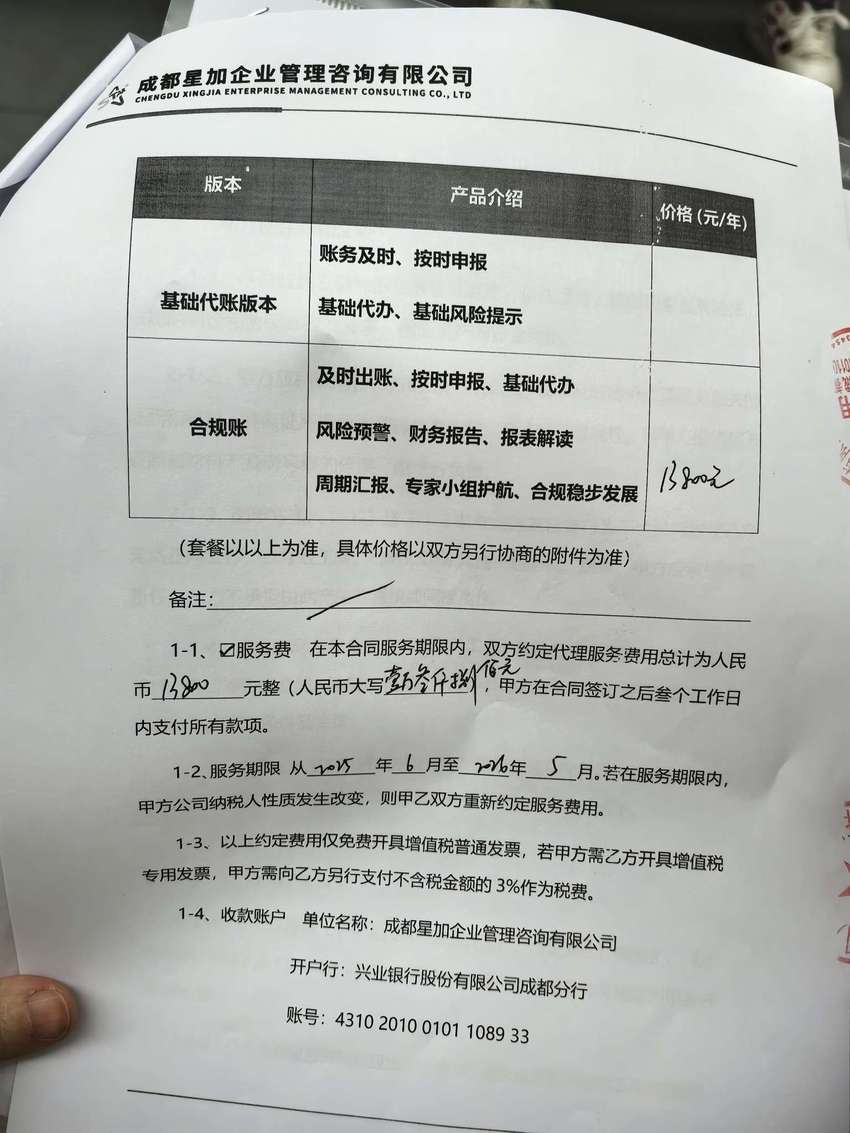 成都星加企业管理咨询有限公司
CHENGDU XINGJIA ENTERPRISE MANAGEMENT CONSULTING CO., LTD
版本 产品介绍 价格(元/年)
基础代账版本
账务及时、按时申报
基础代办、基础风险提示
合规账
及时出账、按时申报、基础代办
风险预警、财务报告、报表解读
周期汇报、专家小组护航、合规稳步发展
13800元
(套餐以以上为准，具体价格以双方另行协商的附件为准)
备注：
1-1、☑服务费 在本合同服务期限内，双方约定代理服务费用总计为人民
币 13800 元整（人民币大写壹万叁仟捌佰元，甲方在合同签订之后叁个工作日
内支付所有款项。
1-2、服务期限 从 2025 年 6 月至 2026 年 5 月。若在服务期限内，
甲方公司纳税人性质发生改变，则甲乙双方重新约定服务费用。
1-3、以上约定费用仅免费开具增值税普通发票，若甲方需乙方开具增值税
专用发票，甲方需向乙方另行支付不含税金额的 3%作为税费。
1-4、收款账户 单位名称：成都星加企业管理咨询有限公司
开户行：兴业银行股份有限公司成都分行
账号：4310 2010 0101 1089 33